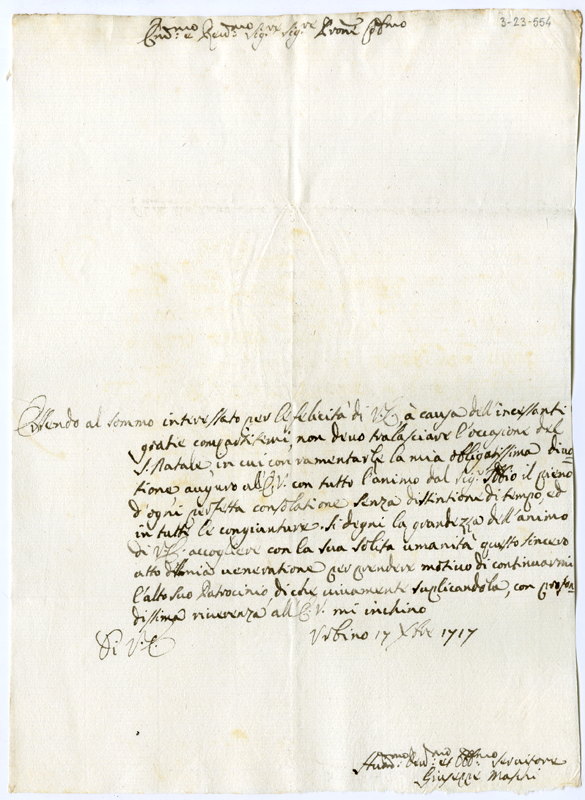 3-23-554
Em.mo e Rev.mo Sig.re Sig.re Prone Col.mo
Essendo al sommo interessato per le felicità di V.E. à causa dell'incessanti
gratie compartitemi, non devo tralasciare l'occasione del
S. Natale, in cui con ramentarle la mia obligatissima divo
tione auguro all'E.V. con tutto l'animo dal Sig.re Iddio il pieno
d'ogni perfetta consolatione senza distintione di tempo, ed
in tutte le congiunture. Si degni la grandezza dell'animo
di V.E. accogliere con la sua solita umanità questo sincero
atto di mia veneratione per prendere motivo di continuarmi
l'alto suo Patrocinio di che vivamente suplicandola, con profon
dissima riverenza all'E.V. mi inchino
Di V.E. Urbino 17 Xbre 1717
Hum.mo Dev.mo et Obl.mo Servitore
Giuseppe